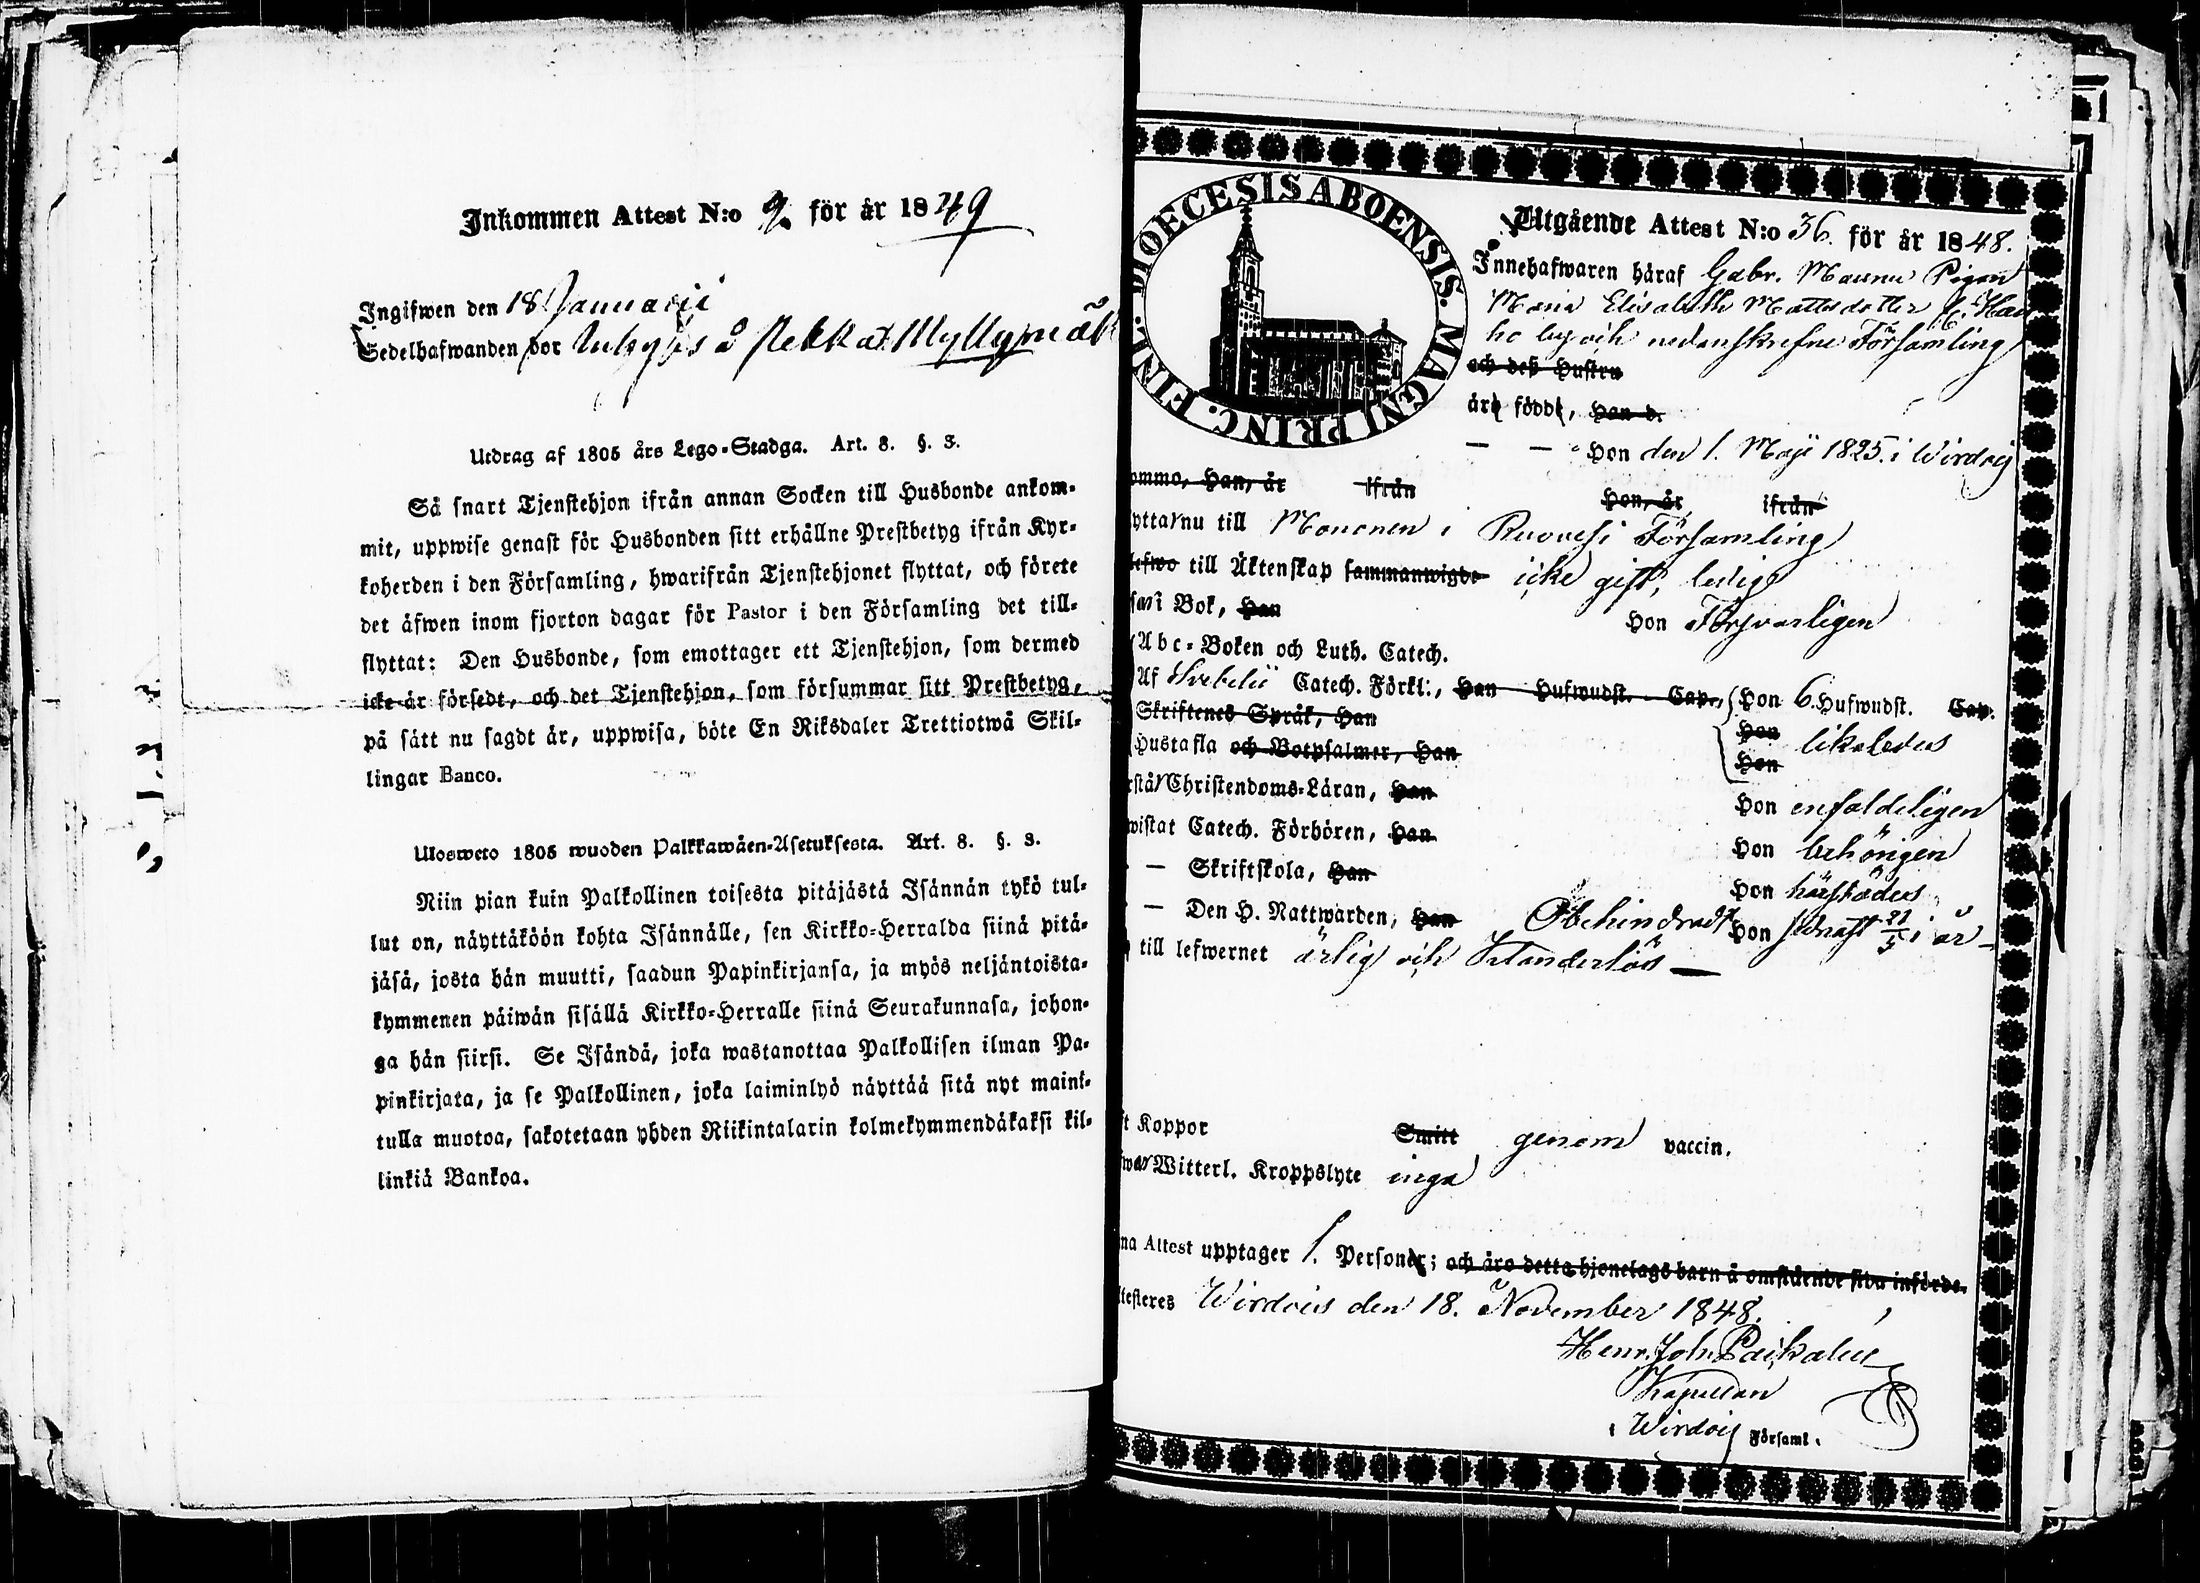 Inkommen Attest N:o 9. för år 1849
Ingifwen den 18 Januarii
Sedelhafwanden bor å Pekkat Myllymäk
Utdrag af 1805 års Lego-Stadga. Art. 8. §. 3.
Så snart Tjenstehjon ifrån annan Socken till Husbonde ankom-
mit, uppwise genast för Husbonden sitt erhållne Prestbetyg ifrån Kyr-
koherden i den Församling, hwarifrån Tjenstehjonet flyttat, och förete
det äfwen inom fjorton dagar för Pastor i den Församling det till-
flyttat: Den Husbonde, som emottager ett Tjenstehjon, som dermed
icke är försedt, och det Tjenstehjon, som försummar sitt Prestbetyg,
på sätt nu sagdt är, uppwisa, böte En Riksdaler Trettiotwå Skil-
lingar Banco.
Ulosweto 1805 wuoden Palkkawäen-Asetuksesta. Art. 8. §. 3.
Niin pian kuin Palkollinen toisesta pitäjästä Isännän tykö tul-
lut on, näyttäköön kohta Isännälle, sen Kirkko-Herralda siinä pitä-
jäsä, josta hän muutti, saadun Papinkirjansa, ja myös neljäntoista-
kymmenen päiwän sisällä Kirkko-Herralle siinä Seurakunnasa, johon-
ga hän siirsi. Se Isändä, joka wastanottaa Palkollisen ilman Pa-
pinkirjata, ja se Palkollinen, joka laiminlyö näyttää sitä nyt maini-
tulla muotoa, sakotetaan yhden Riikintalarin kolmekymmendäkaksi kil-
linkiä Bankoa.
DIOECESIS ABOENSIS. MAGNI PRINC. FINL.
Utgående Attest N:o 36. för år 1848.
Innehafwaren häraf Gabr. Maunu Pigan
Maria Elisabeth Mattsdotter fr. Hau
ho by och nedanskrefne Församling
och deß Hustru
äro född, Han d.
— — Hon den 1. Maji 1825. i Wirdois
ommo, Han, år ifrån Hon, år ifrån
yttar nu till Mononen i Ruovesi Församling
lefwo till Äktenskap sammanwigde icke gift, ledig
i Bok, Han Hon Försvarligen
Abc-Boken och Luth. Catech.
Af Svebelii Catech. Förkl:, Han Hufwudst. Cap., Hon 6. Hufwudst. Cap.
Skriftenes Språk, Han Hon likaledes
Hustafla och Botpsalmer, Han Hon
rstår Christendoms-Läran, Han Hon enfaldeligen
wistat Catech. Förhören, Han Hon behörigen
— Skriftskola, Han Hon härstädes
— Den H. Nattwarden, Han Obehindradt Hon sednast 21/5 i år
till lefwernet ärlig och klanderlös —
t Koppor Smitt genom vaccin.
Witterl. Kroppslyte inga
na Attest upptager 1. Personer; och äro detta hjonelags barn å omstående sida införde.
ttesteres Wirdois den 18. November 1848.
Henr. Joh. Paikalen
Kapellan
i Wirdois Församl.